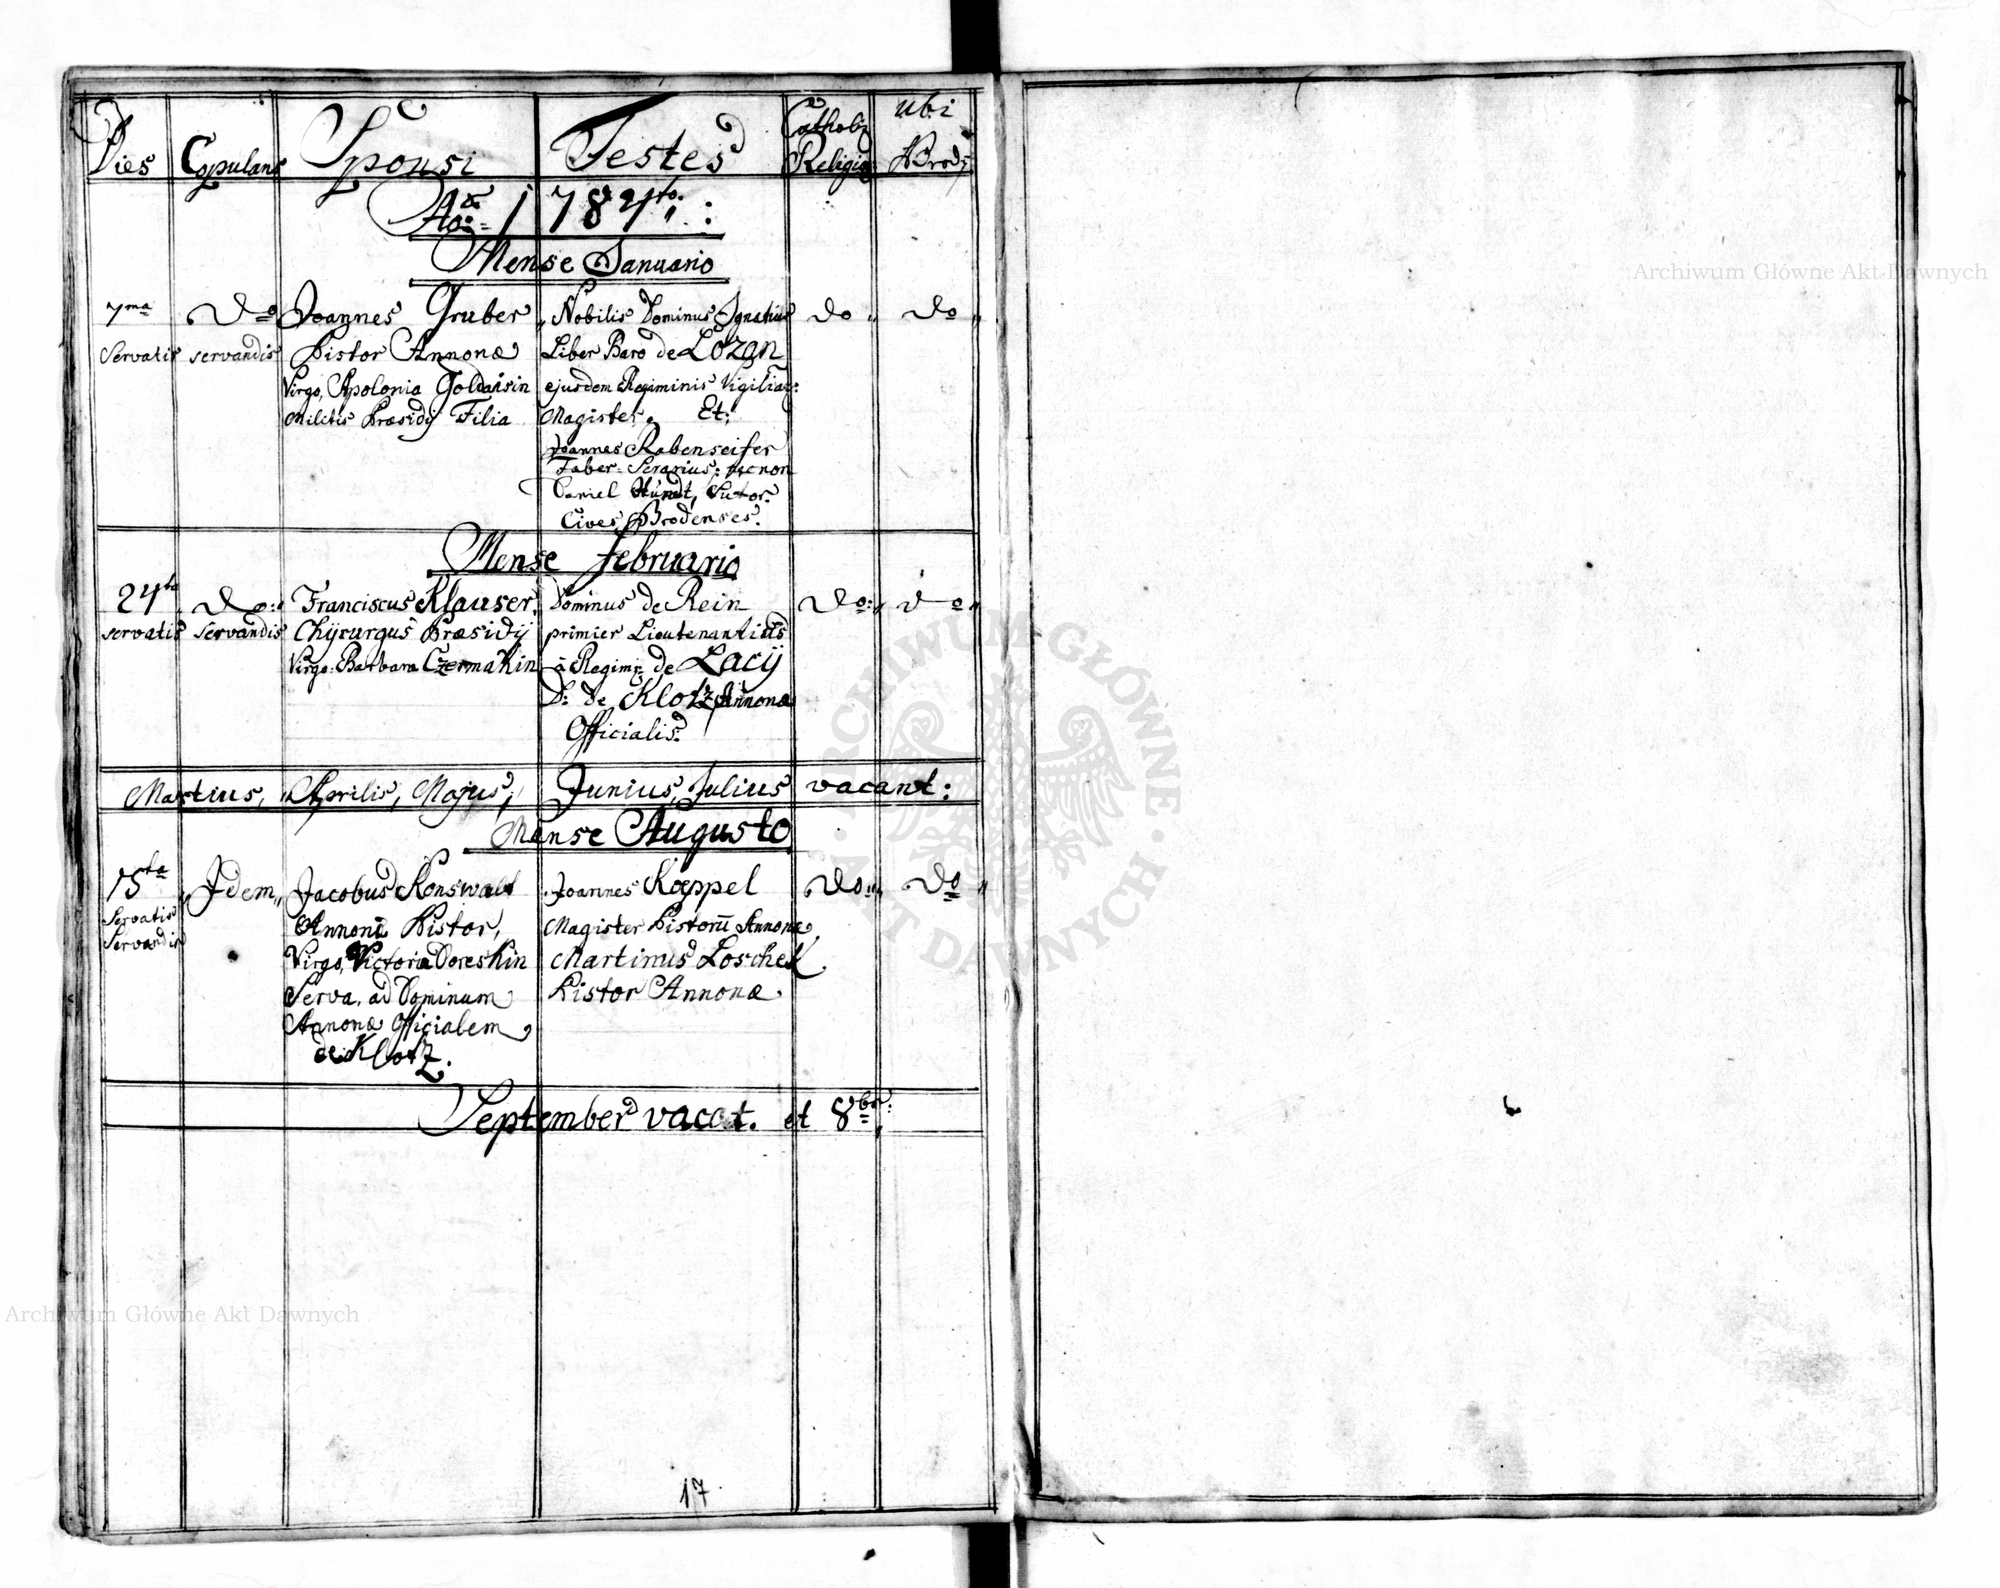 Dies Copulans Sponsi Testes Catholi Religio Ubi Brodÿ
Ao 1784to:
Mense Januario
7ma Do Joannes Gruber Nobilis Dominus Ignatius Do Do
Servatis servandis Pistor Annonæ Liber Baro de Lozan
Virgo Apolonia Goldaisin ejusdem Regiminis Vigiliar:
Militis Præsidij Filia Magister Et:
Joannes Rabenseifer
Faber Serarius: necnon
Daniel Hundt, Sutor.
Cives Brodenses.
Mense februario
24ta Do: Franciscus Klauser Dominus de Rein Do: Do
servatis Servandis Chÿrurgus Præsidÿ primier Lieutenantius
Virgo Barbara Czermakin à Regim: de Lacÿ
D: de Klotz Annonæ
Officialis.
Martius, Aprilis, Majus, Junius, Julius vacant:
Mense Augusto
15ta Idem Jacobus Konswalt Joannes Kæppel Do Do
Servatis Servandis Annonæ Pistor, Magister Pistorū Annonæ
Virgo Victoria Doreskin Martinus Loschek
Serva, ad Dominum Pistor Annonæ.
Annonæ Officialem
de Klotz.
September vacat. et 8br:
17
Archiwum Główne Akt Dawnych
Archiwum Główne Akt Dawnych
ARCHIWUM GŁÓWNE · AKT DAWNYCH ·